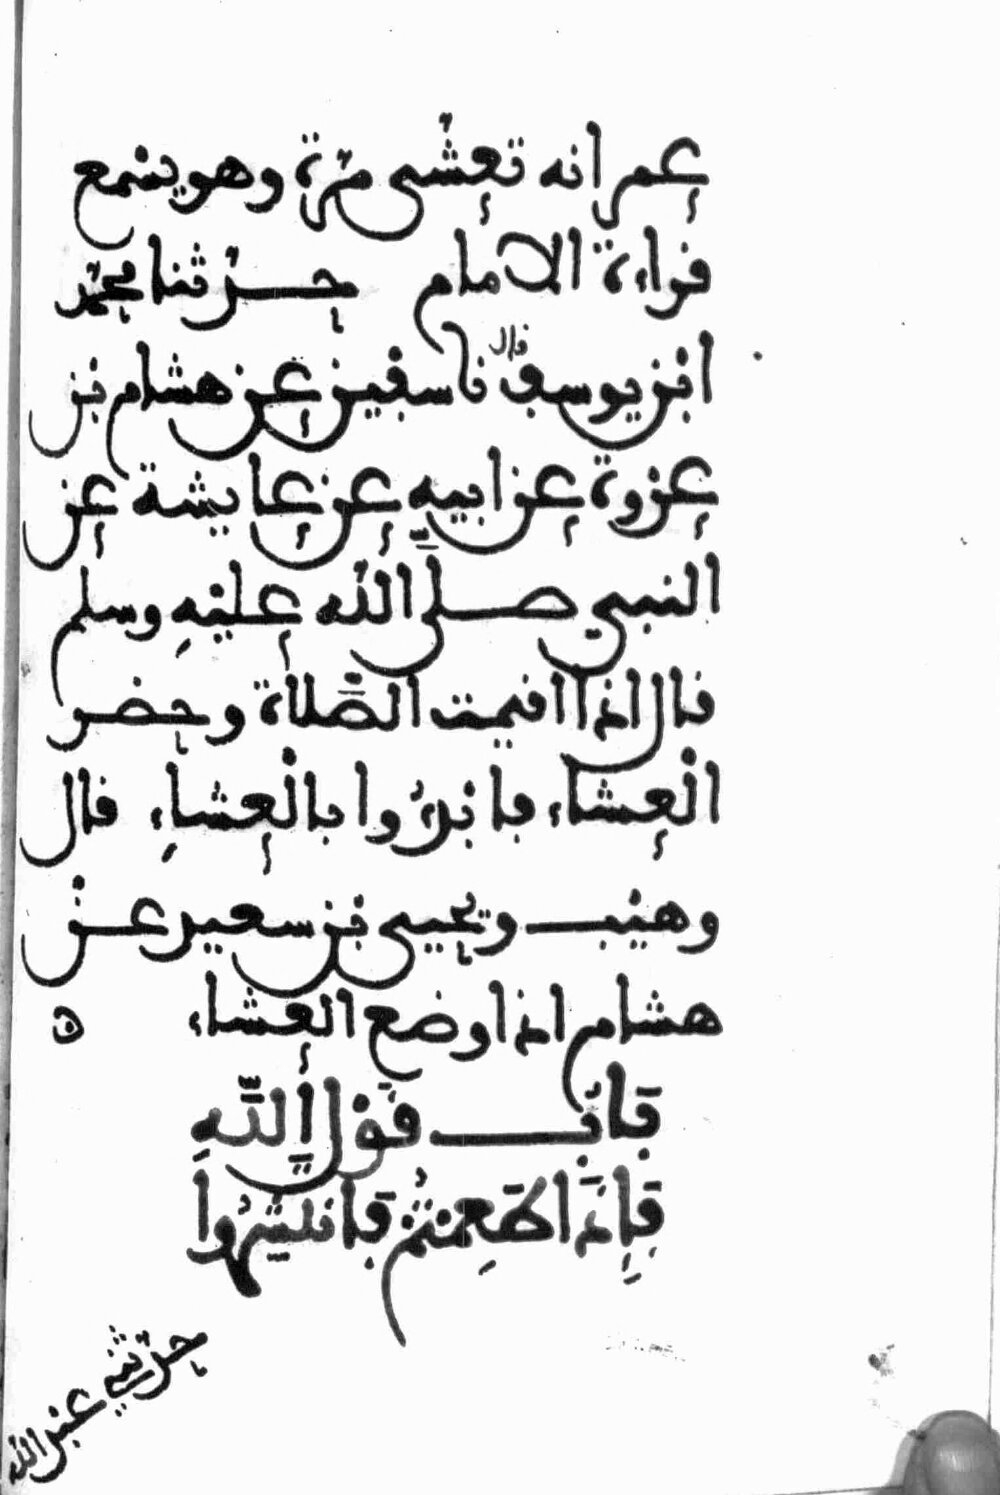 عمر انه تعشى مرة وهو يسمع
قراءة الامام حدثنا محمد
ابن يوسف قال نا سفين عن هشام بن
عروة عن ابيه عن عايشة عن
النبي صلَّى الله عليْهِ وسلم
قال اذا اقيمت الصَّلاة وحضر
الْعشاء فابْدءُوا بالْعِشاءِ قال
وهيْب ويحيى بن سعيد عن
هشام اذا وضع العشاء ه
بَابُ قَوْل اللَّهِ
فَإِذَا طَعِمْتُمْ فَانتَشِرُوا
حدثني عبد الله